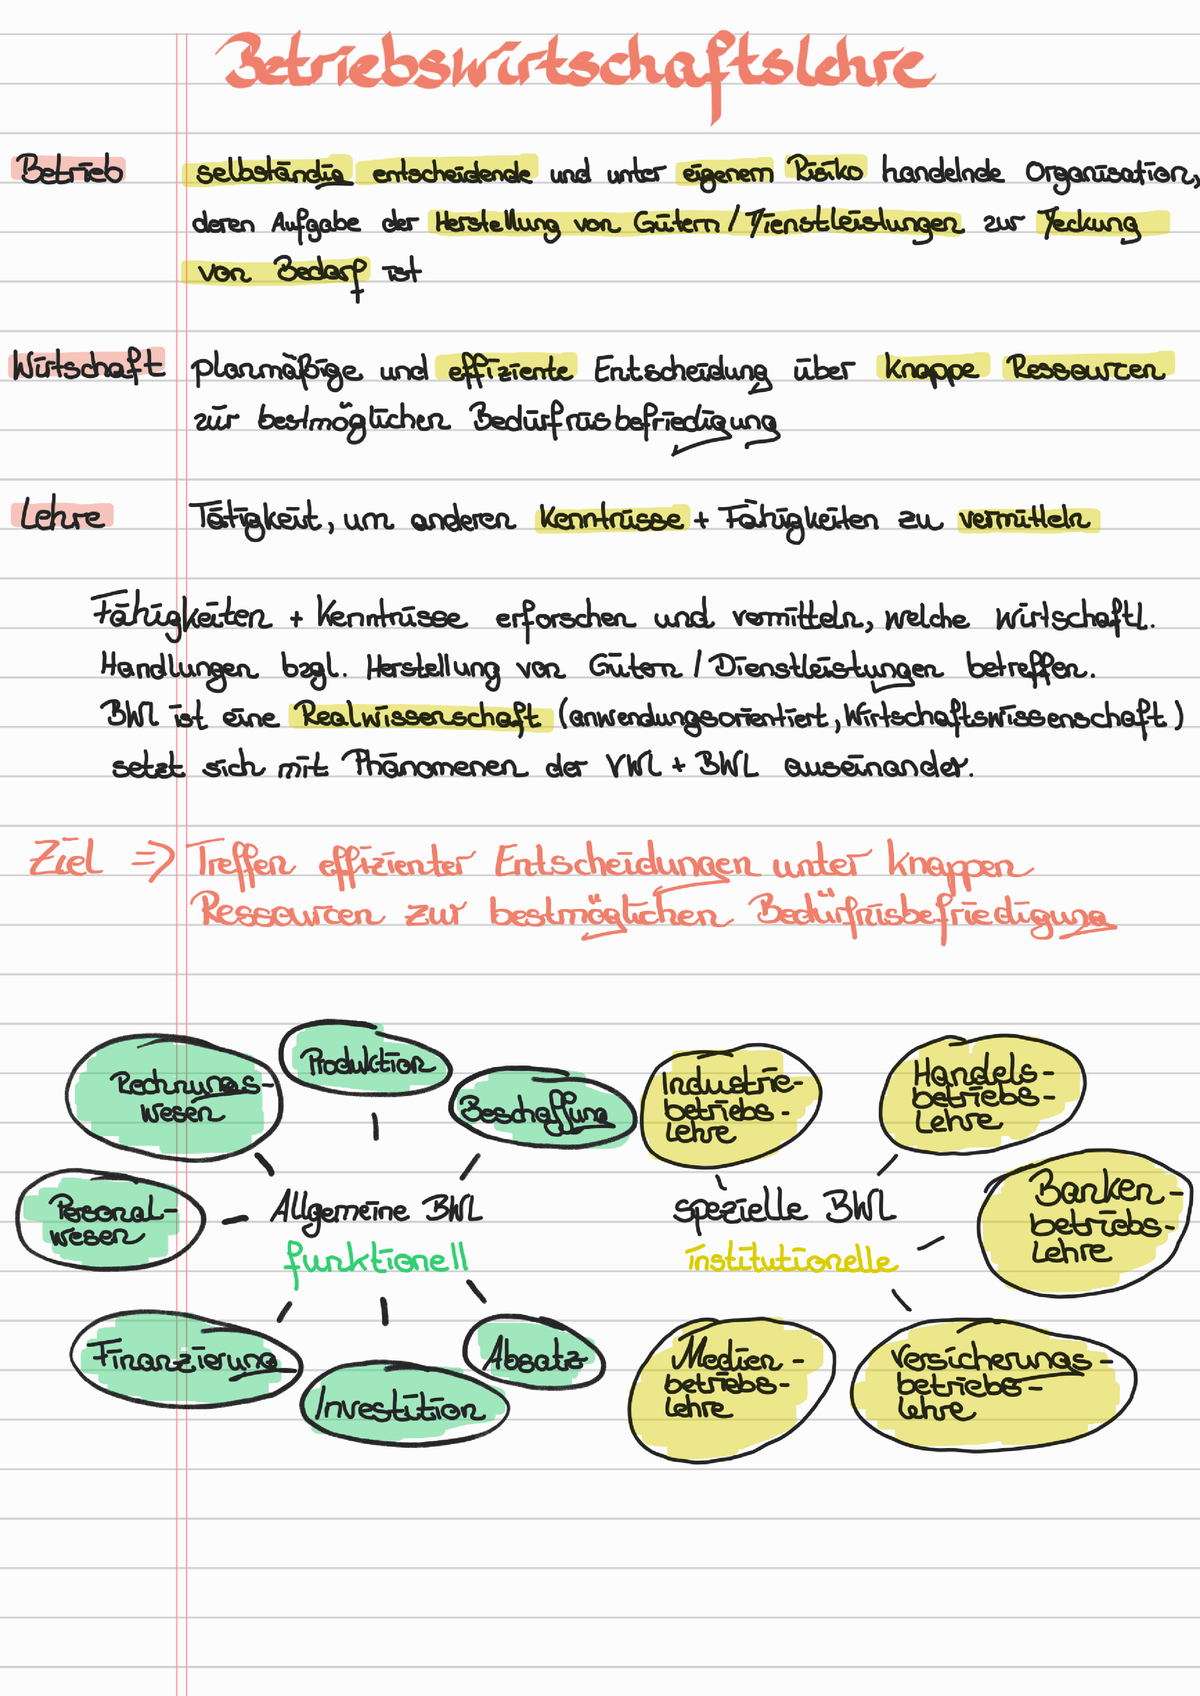 Betriebswirtschaftslehre
Betrieb selbständig entscheidende und unter eigenem Risiko handelnde Organisation,
deren Aufgabe der Herstellung von Gütern / Dienstleistungen zur Deckung
von Bedarf ist
Wirtschaft planmäßige und effiziente Entscheidung über knappe Ressourcen
zur bestmöglichen Bedürfnisbefriedigung
Lehre Tätigkeit, um anderen Kenntnisse + Fähigkeiten zu vermitteln
Fähigkeiten + Kenntnisse erforschen und vermitteln, welche wirtschaftl.
Handlungen bzgl. Herstellung von Gütern / Dienstleistungen betreffen.
BWL ist eine Realwissenschaft (anwendungsorientiert, Wirtschaftswissenschaft)
setzt sich mit Phänomenen der VWL + BWL auseinander.
Ziel => Treffen effizienter Entscheidungen unter knappen
Ressourcen zur bestmöglichen Bedürfnisbefriedigung
Rechnungs-
wesen
Produktion
Beschaffung
Personal-
wesen
Allgemeine BWL
funktionell
Finanzierung
Investition
Absatz
Industrie-
betriebs-
lehre
Handels-
betriebs-
Lehre
spezielle BWL
institutionelle
Banken-
betriebs-
lehre
Medien-
betriebs-
lehre
Versicherungs-
betriebs-
lehre